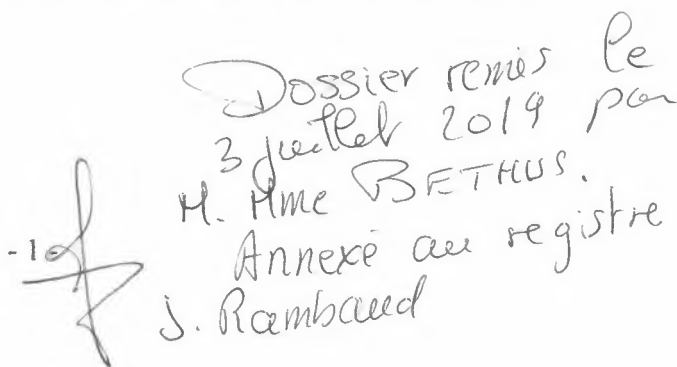 Dossier remis le
3 juillet 2019 par
M. Mme BETHUS.
Annexé au registre
- 1 -
J. Rambaud